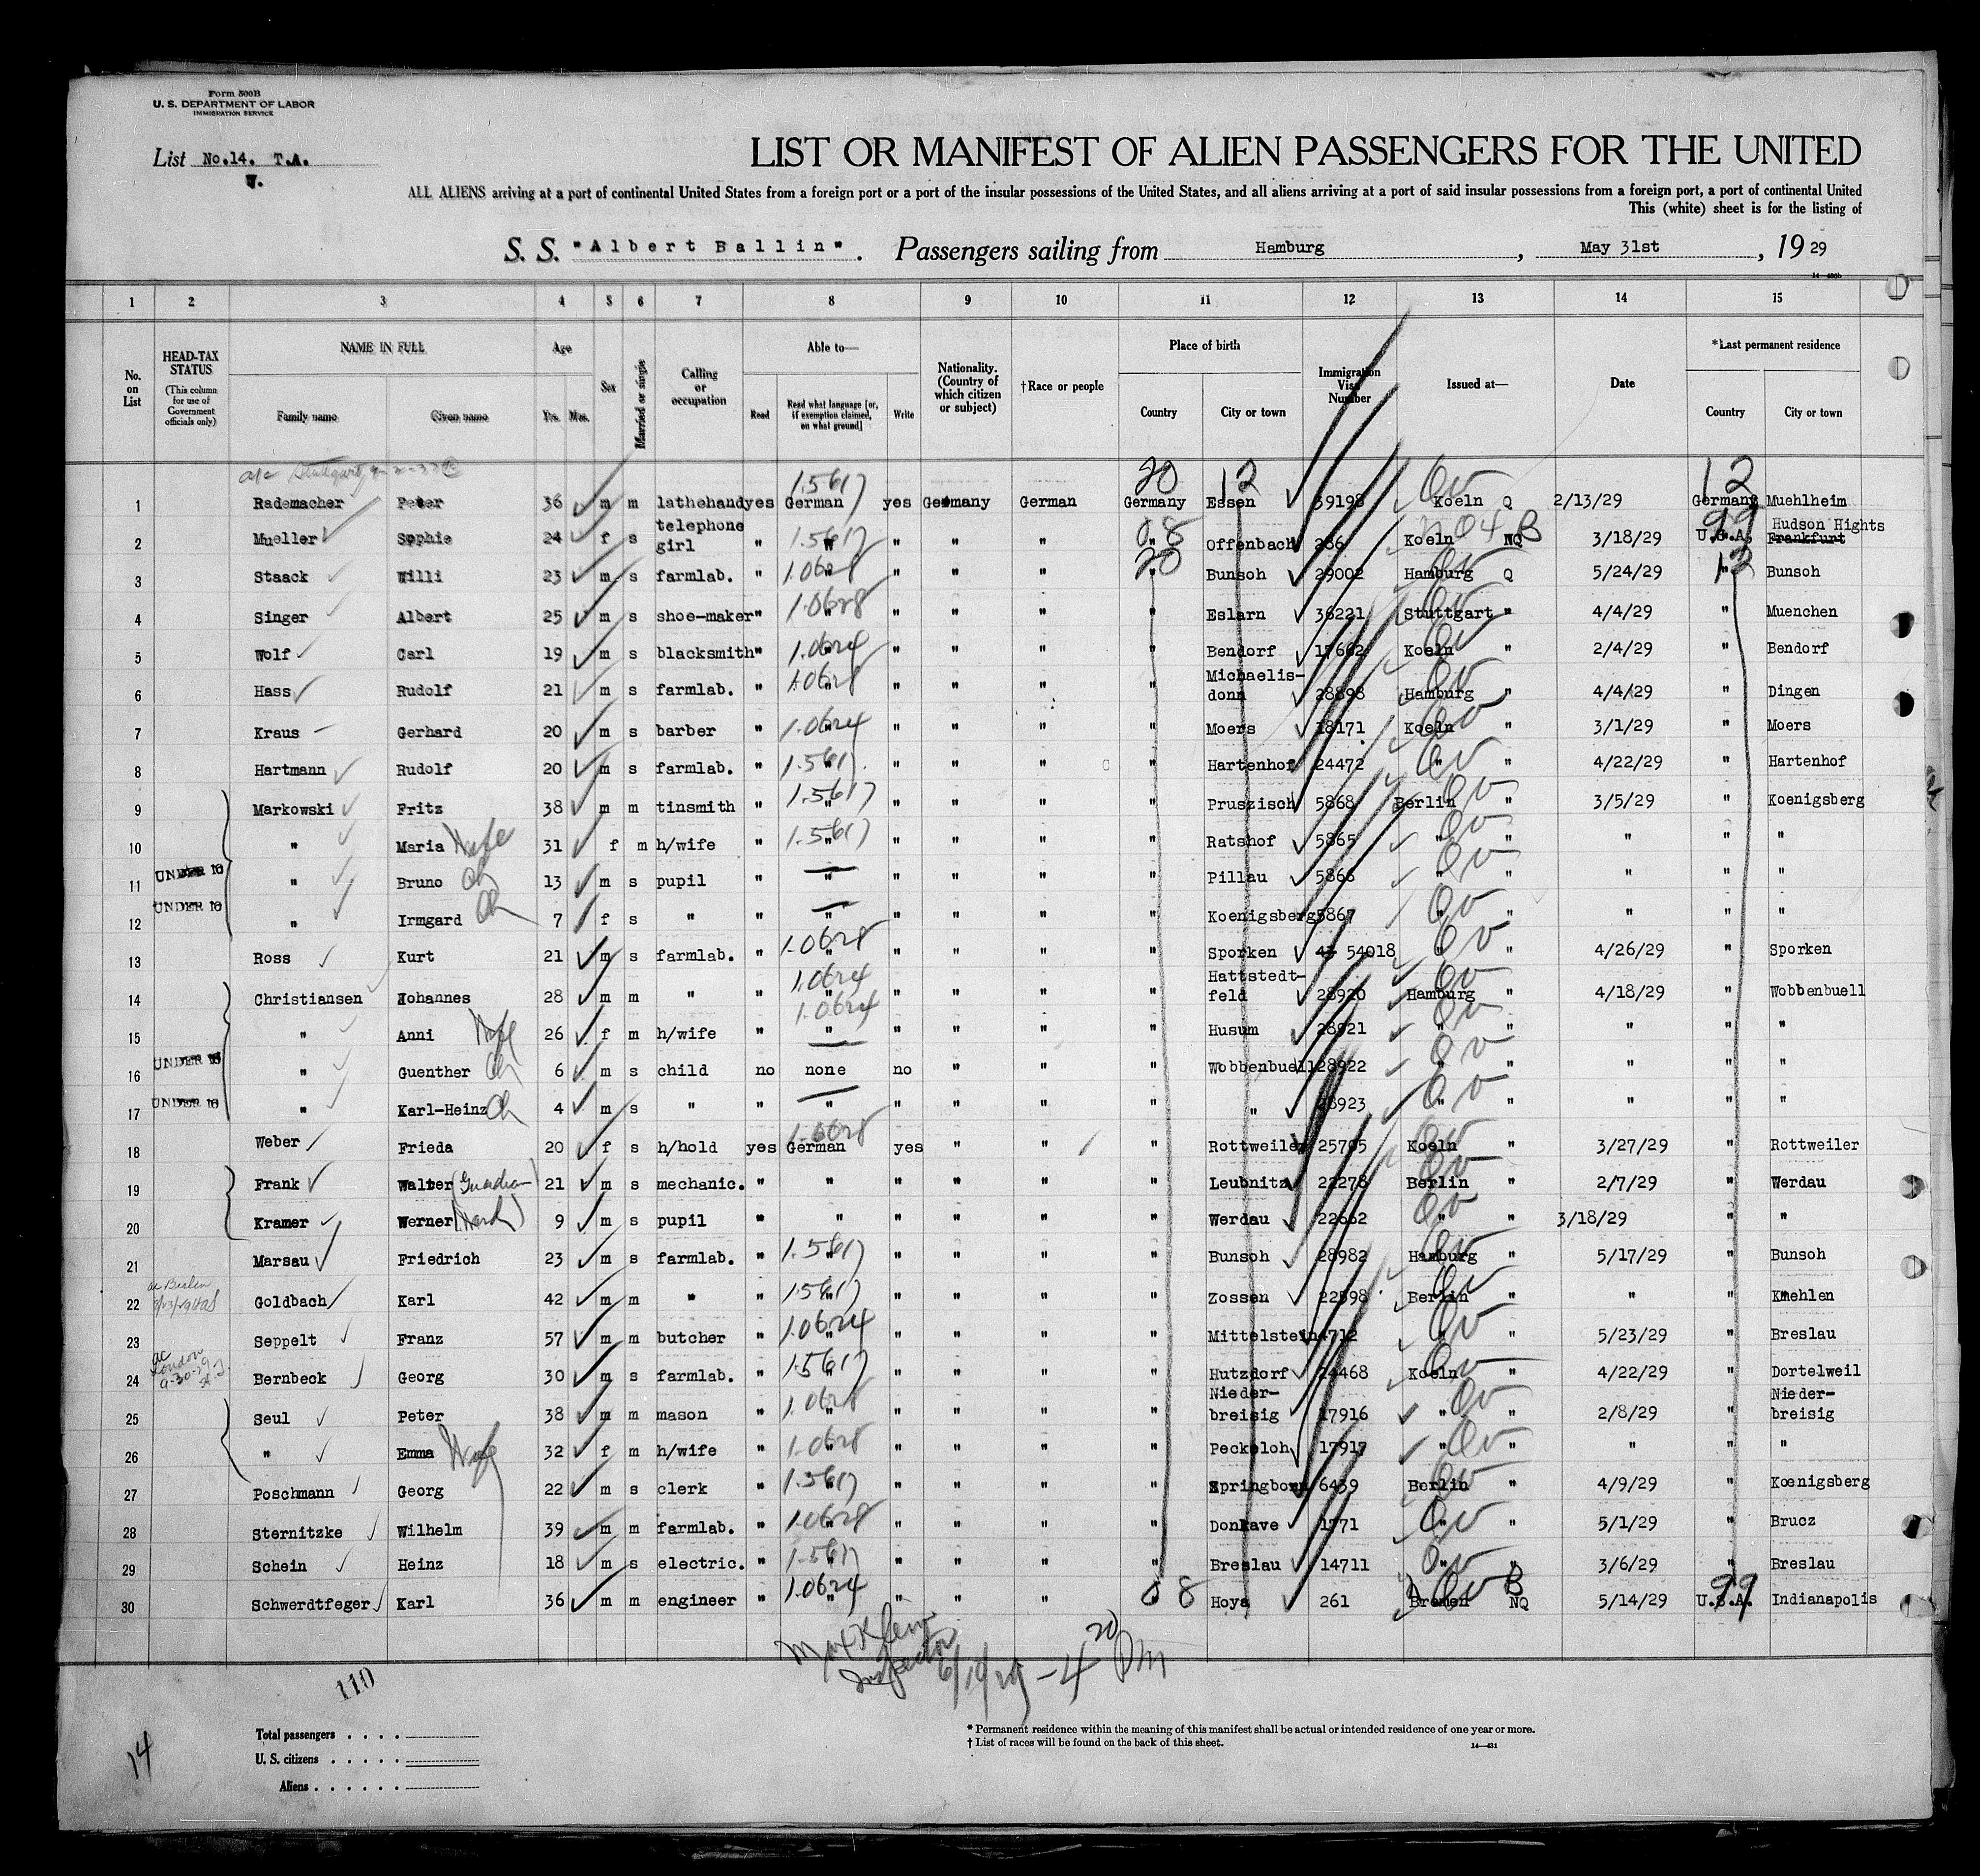 Form 500B
U. S. DEPARTMENT OF LABOR
IMMIGRATION SERVICE
List No.14. T.A.
LIST OR MANIFEST OF ALIEN PASSENGERS FOR THE UNITED
ALL ALIENS arriving at a port of continental United States from a foreign port or a port of the insular possessions of the United States, and all aliens arriving at a port of said insular possessions from a foreign port, a port of continental United
This (white) sheet is for the listing of
S. S. "Albert Ballin". Passengers sailing from Hamburg, May 31st, 19 29
1 2 3 4 5 6 7 8 9 10 11 12 13 14 15
No. on List
HEAD-TAX STATUS (This column for use of Government officials only)
NAME IN FULL Family name Given name
Age Yrs. Mos.
Sex
Married or single
Calling or occupation
Able to— Read Read what language [or, if exemption claimed, on what ground] Write
Nationality. (Country of which citizen or subject)
†Race or people
Place of birth Country City or town
Immigration Visa Number
Issued at—
Date
*Last permanent residence Country City or town
1 Rademacher Peter 36 m m lathehand yes German 1.5617 yes Germany German 20 Germany 12 Essen 39198 Koeln Q 2/13/29 12 Germany Muehlheim
2 Mueller Sophie 24 f s telephone girl " " 1.5617 " " " 08 " Offenbach 286 Koeln NQ B 3/18/29 99 U.S.A. Hudson Hights Frankfurt
3 Staack Willi 23 m s farmlab. " " 1.0628 " " " 20 " Bunsoh 29002 Hamburg Q 5/24/29 12 " Bunsoh
4 Singer Albert 25 m s shoe-maker " " 1.0628 " " " " Eslarn 36221 Stuttgart " 4/4/29 " Muenchen
5 Wolf Carl 19 m s blacksmith " " 1.0624 " " " " Bendorf 17662 Koeln " 2/4/29 " Bendorf
6 Hass Rudolf 21 m s farmlab. " " 1.0628 " " " " Michaelis-donn 28898 Hamburg " 4/4/29 " Dingen
7 Kraus Gerhard 20 m s barber " " 1.0624 " " " " Moers 18171 Koeln " 3/1/29 " Moers
8 Hartmann Rudolf 20 m s farmlab. " " 1.5617 " " " " Hartenhof 24472 " " 4/22/29 " Hartenhof
9 Markowski Fritz 38 m m tinsmith " " 1.5617 " " " " Pruszisch 5868 Berlin " 3/5/29 " Koenigsberg
10 " Maria Wife 31 f m h/wife " " 1.5617 " " " " Ratshof 5865 " " " " "
11 UNDER 16 " Bruno Ch 13 m s pupil " " " " " " Pillau 5866 " " " " "
12 UNDER 16 " Irmgard Ch 7 f s " " " " " " " Koenigsberg 5867 " " " " "
13 Ross Kurt 21 m s farmlab. " " 1.0628 " " " " Sporken 54018 " " 4/26/29 " Sporken
14 Christiansen Johannes 28 m m " " " 1.0624 " " " " Hattstedt-feld 28920 Hamburg " 4/18/29 " Wobbenbuell
15 " Anni Wife 26 f m h/wife " " 1.0624 " " " " Husum 28921 " " " " "
16 UNDER 16 " Guenther Ch 6 m s child no none no " " " Wobbenbuell 28922 " " " " "
17 UNDER 16 " Karl-Heinz Ch 4 m s " " " " " " " " 28923 " " " " "
18 Weber Frieda 20 f s h/hold yes German 1.0628 yes " " " Rottweiler 25705 Koeln " 3/27/29 " Rottweiler
19 Frank Walter (Guardian) 21 m s mechanic. " " " " " " Leubnitz 22278 Berlin " 2/7/29 " Werdau
20 Kramer Werner (Ward) 9 m s pupil " " " " " " Werdau 22662 " " 3/18/29 " "
21 Marsau Friedrich 23 m s farmlab. " " 1.5617 " " " " Bunsoh 28982 Hamburg " 5/17/29 " Bunsoh
22 Goldbach Karl 42 m m " " " 1.5617 " " " " Zossen 22598 Berlin " " " Kmehlen
23 Seppelt Franz 57 m m butcher " " 1.0624 " " " " Mittelstein 4712 " " 5/23/29 " Breslau
24 ac London 9-30-29 Bernbeck Georg 30 m s farmlab. " " 1.5617 " " " " Hutzdorf 24468 Koeln " 4/22/29 " Dortelweil
25 Seul Peter 38 m m mason " " 1.0628 " " " " Nieder-breisig 17916 " " 2/8/29 " Nieder-breisig
26 " Emma Wife 32 f m h/wife " " 1.0628 " " " " Peckeloh 17917 " " " " "
27 Poschmann Georg 22 m s clerk " " 1.5617 " " " " Springborn 6439 Berlin " 4/9/29 " Koenigsberg
28 Sternitzke Wilhelm 39 m m farmlab. " " 1.0628 " " " " Donkave 1771 " " 5/1/29 " Brucz
29 Schein Heinz 18 m s electric. " " 1.5617 " " " " Breslau 14711 " " 3/6/29 " Breslau
30 Schwerdtfeger Karl 36 m m engineer " " 1.0624 " " " 08 " Hoya 261 Bremen NQ B 5/14/29 99 U.S.A. Indianapolis
Inspector 6/10/29 - 4 20 Pm
110
14
Total passengers
U. S. citizens
Aliens
* Permanent residence within the meaning of this manifest shall be actual or intended residence of one year or more.
† List of races will be found on the back of this sheet.
14—431